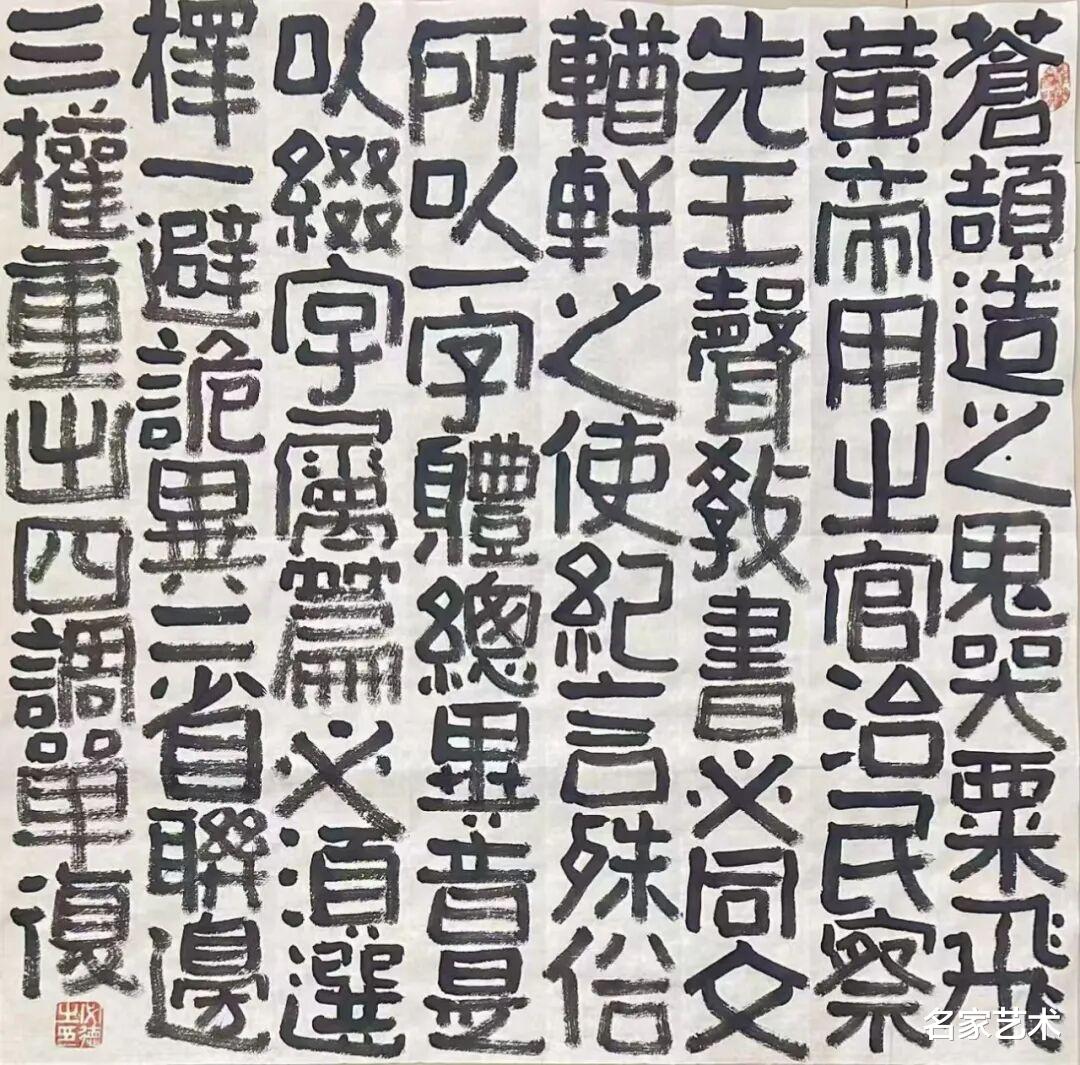 蒼頡造之鬼哭粟飛
黃帝用之官治民察
先王聲教書必同文
輶軒之使紀言殊俗
所以一字體總異音是
以綴字屬篇必須選
擇一避詭異二省聯邊
三權重出四調單復
名家艺术